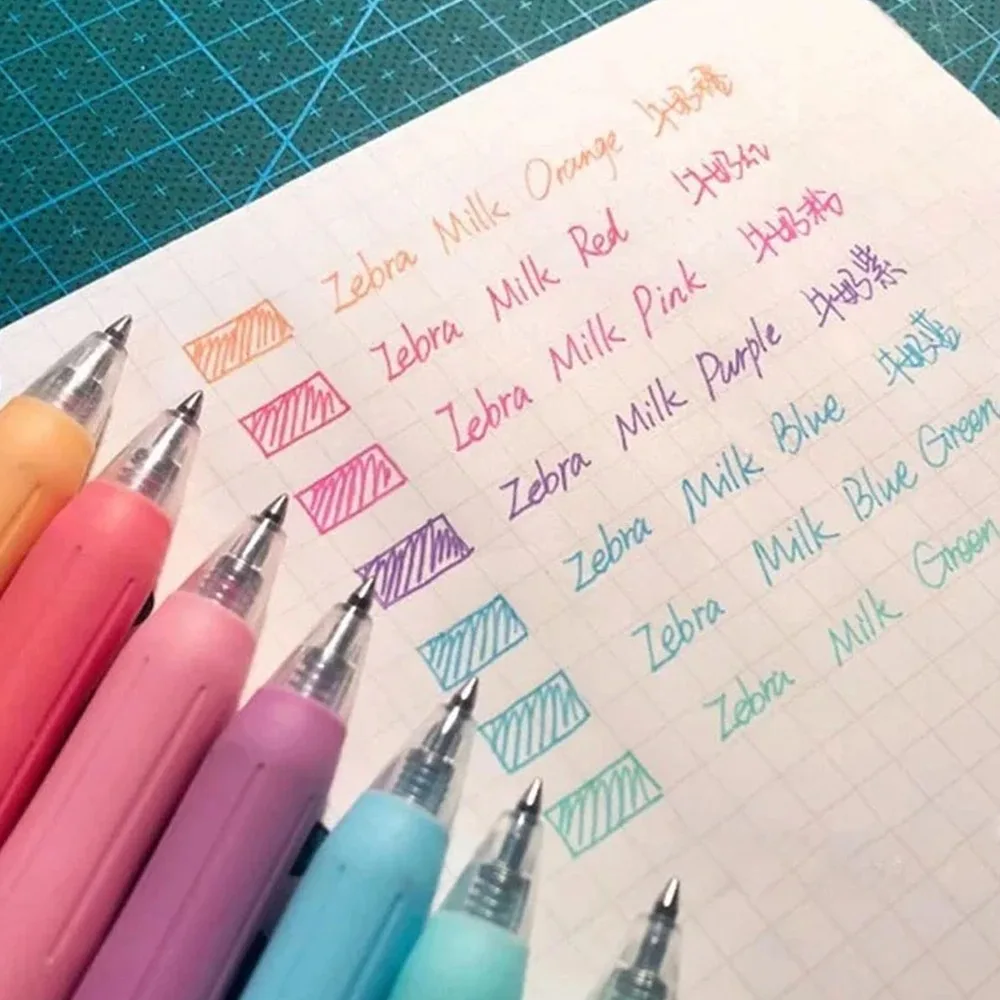 Zebra Milk Orange 牛奶橙
Zebra Milk Red 牛奶红
Zebra Milk Pink 牛奶粉
Zebra Milk Purple 牛奶紫
Zebra Milk Blue 牛奶蓝
Zebra Milk Blue Green
Zebra Milk Green